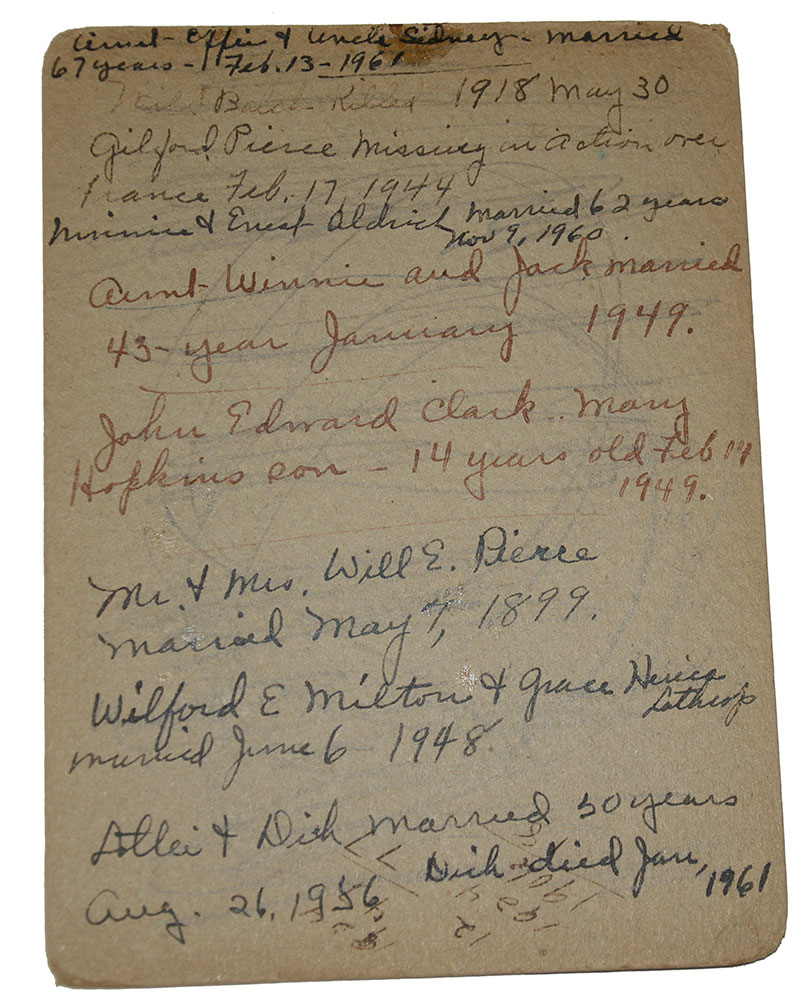 Aunt Effie & Uncle Sidney - Married
67 years - Feb. 13 - 1961
Killed 1918 May 30
Gilford Pierce Missing in action over
France Feb. 17, 1944
Minnie & Ernest Aldrich Married 62 years
Nov 9, 1960.
Aunt Winnie and Jack married
43 - year January 1949.
John Edward Clark.. Mary
Hopkins son - 14 years old Feb 14
1949.
Mr. & Mrs. Will E. Pierce
Married May 7, 1899.
Wilford E Milton & Grace
Lothrop
married June 6 1948.
& Dick Married 50 years
Dick died Jan, 1961
Aug. 26, 1956